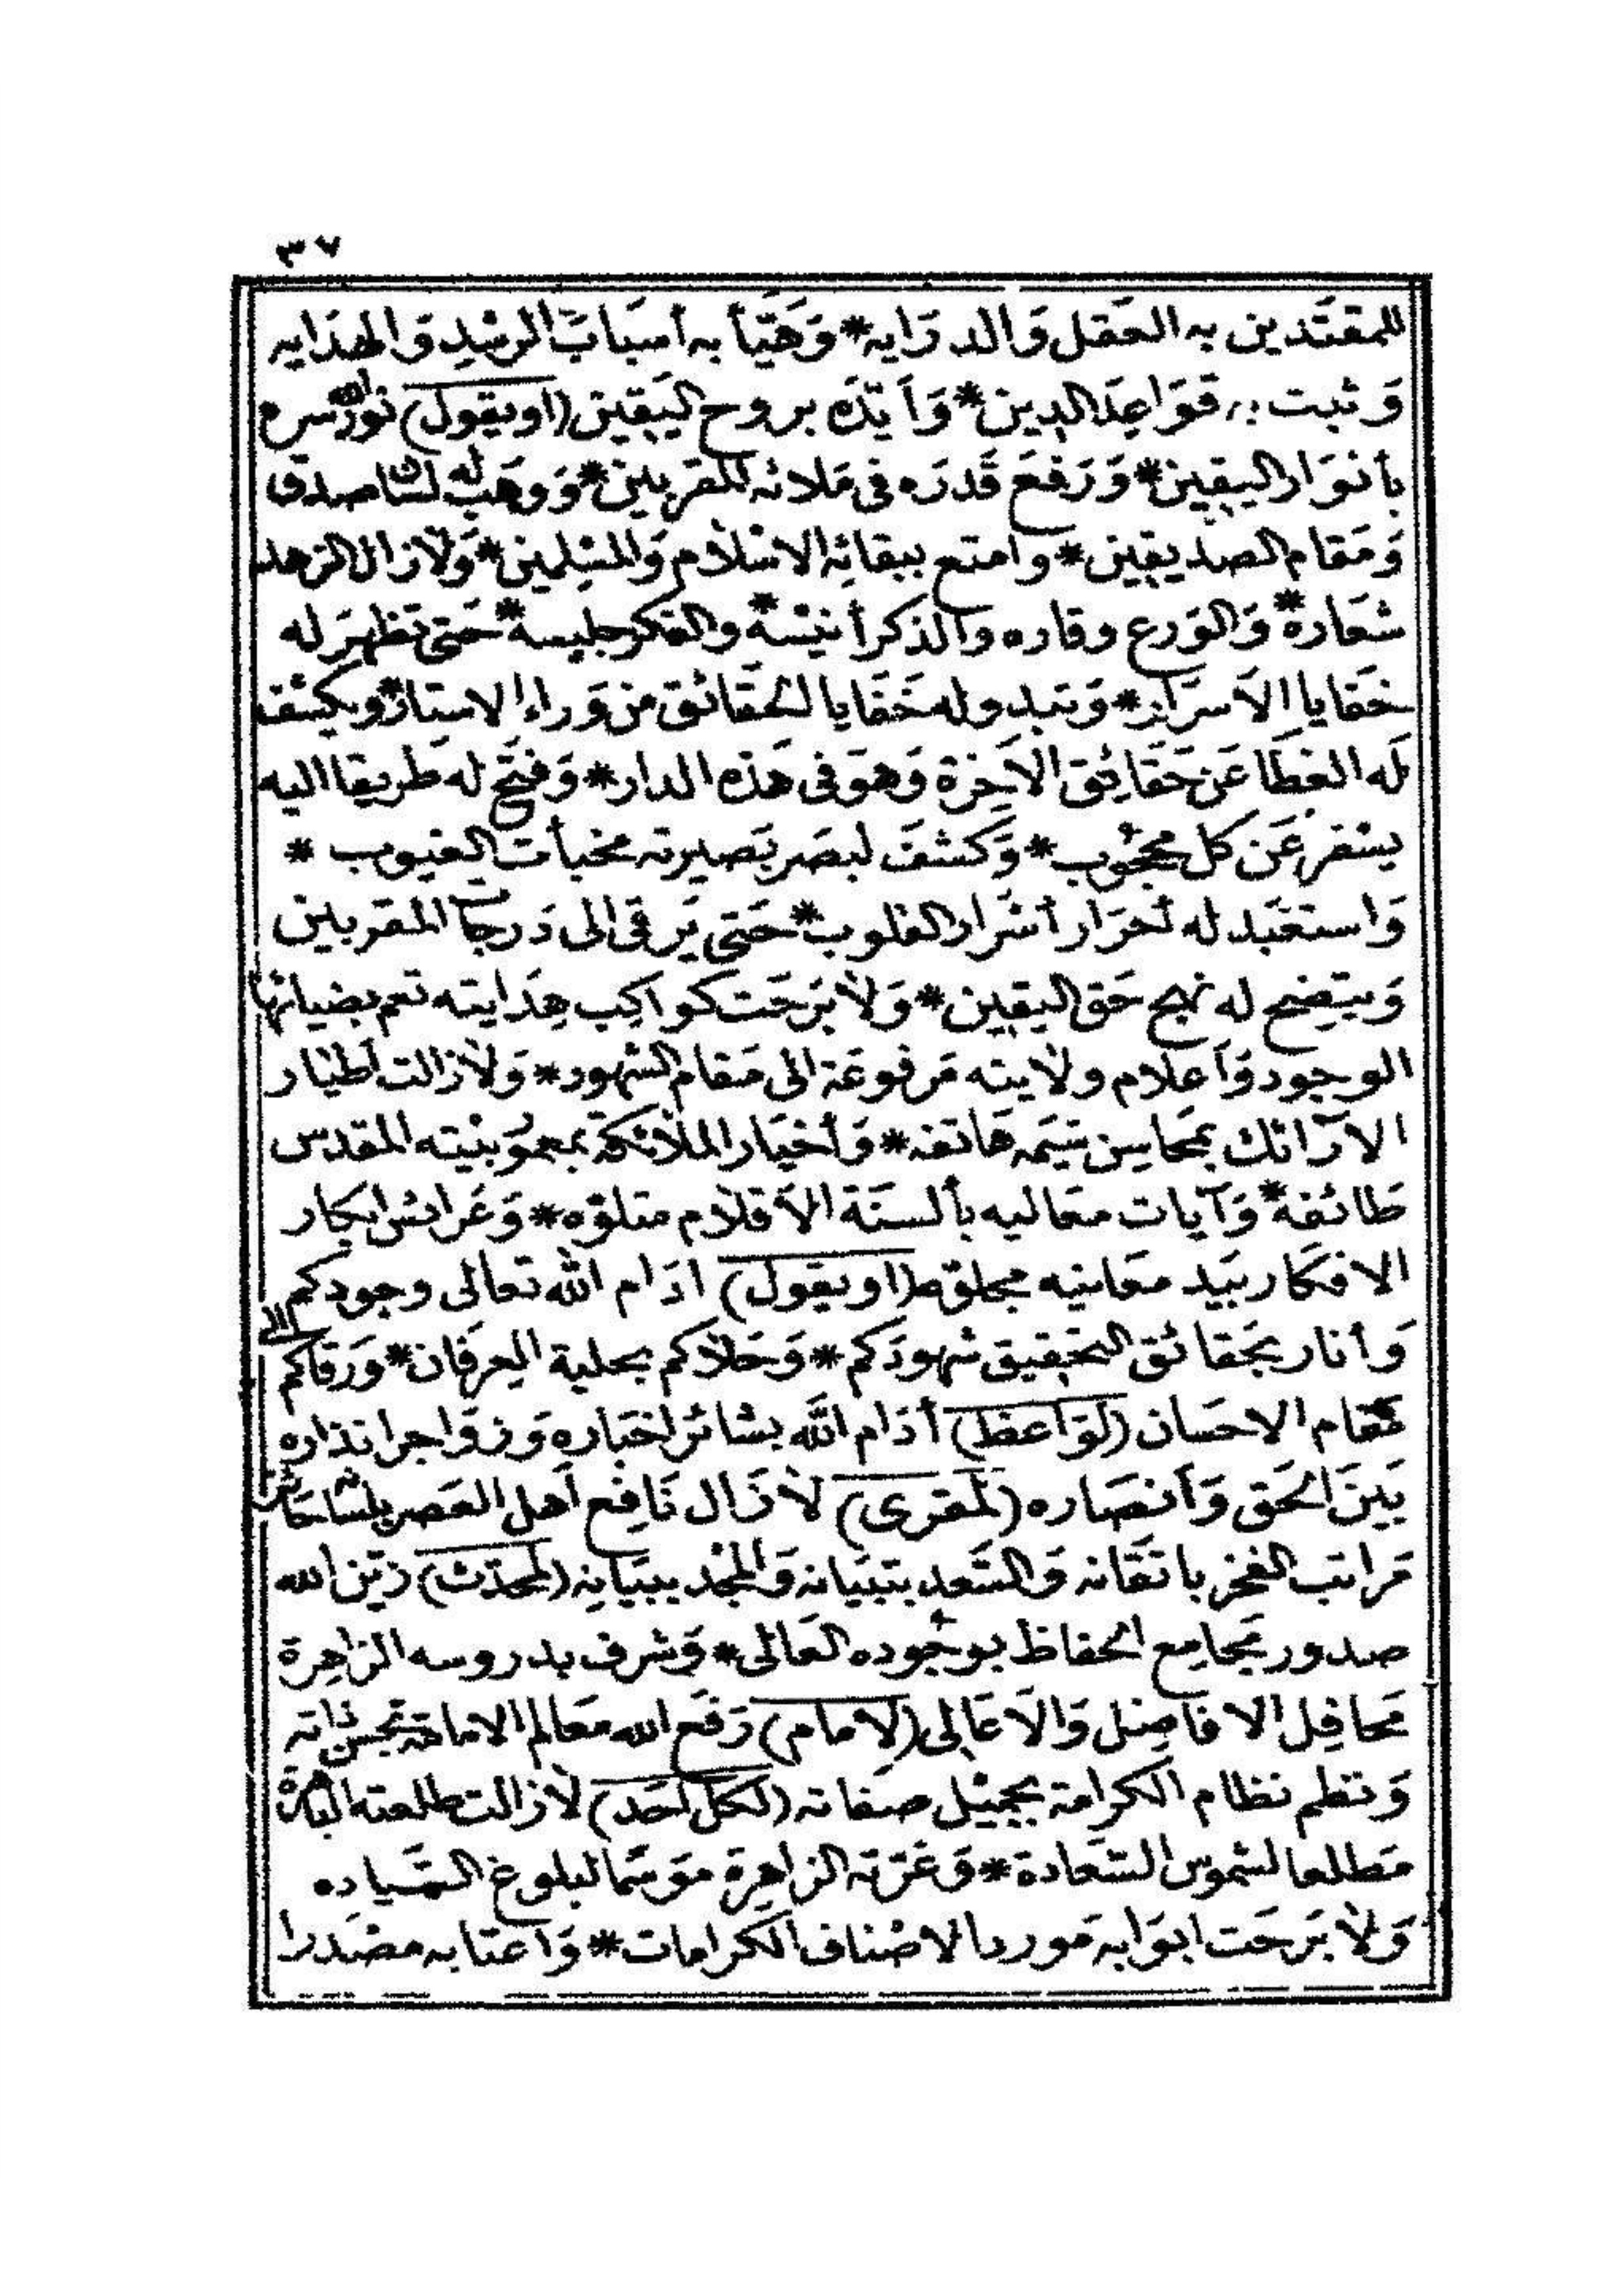 ٣٧
للمقتدين به العقل والدرايه * وهيأ به أسباب الرشد والهدايه
وثبت به قواعد الدين * وأيده بروح اليقين (او يقول) نور الله سره
بأنوار اليقين * ورفع قدره فى ملائه المقربين * ووهب له لسان صدق
ومقام الصديقين * وامتع ببقائه الاسلام والمسلمين * ولازال الزهد
شعاره * والورع وقاره والذكر أنيسه * والفكر جليسه * حتى تظهر له
خفايا الأسرار * وتبدو له خفايا الحقائق من وراء الاستار * ويكشف
له الغطا عن حقائق الآخرة وهو فى هذه الدار * وفتح له طريقا اليه
يسفر عن كل محجوب * وكشف لبصر بصيرته مخبأت الغيوب *
واستعبد له أحرار أسرار القلوب * حتى يرقى الى درجات المقربين
ويتضح له نهج حق اليقين * ولا برحت كواكب هدايته تعم بضيائها
الوجود وأعلام ولايته مرفوعة الى مقام الشهود * ولا زالت أطيار
الارائك بمحاسن شيمه هاتفه * وأخيار الملائكة بمعمور بيته المقدس
طائفة * وآيات معاليه بألسنة الأقلام متلوه * وعرائس ابكار
الافكار بيد معانيه مجلوة (او يقول) ادام الله تعالى وجودكم
وأنار بحقائق التحقيق شهودكم * وحلاكم بحلية العرفان * ورقاكم الى
مقام الاحسان (لواعظ) أدام الله بشائر اخباره وزواجر انذاره
بين الحق وأنصاره (لمقرى) لا زال نافع أهل العصر بلسانه حائز
مراتب الفخر باتقانه والسعد بتبيانه والمجد ببيانه (لمحدث) زين الله
صدور مجامع الحفاظ بوجوده العالى * وشرف بدروسه الزاهرة
محافل الافاضل والأعالى (لامام) رفع الله معالم الامامة بحسن ذاته
ونظم نظام الكرامة بجميل صفاته (لكل احد) لا زالت طلعته الباهرة
مطلعا لشموس السعادة * وغرته الزاهرة موسما لبلوغ السياده
ولا برحت ابوابه موردا لاصناف الكرامات * واعتابه مصدرا